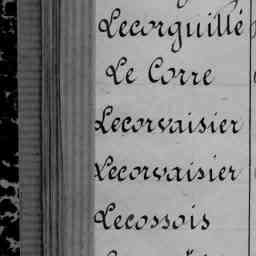 Lecorguillé
Le Corre
Lecorvaisier
Lecorvaisier
Lecossois